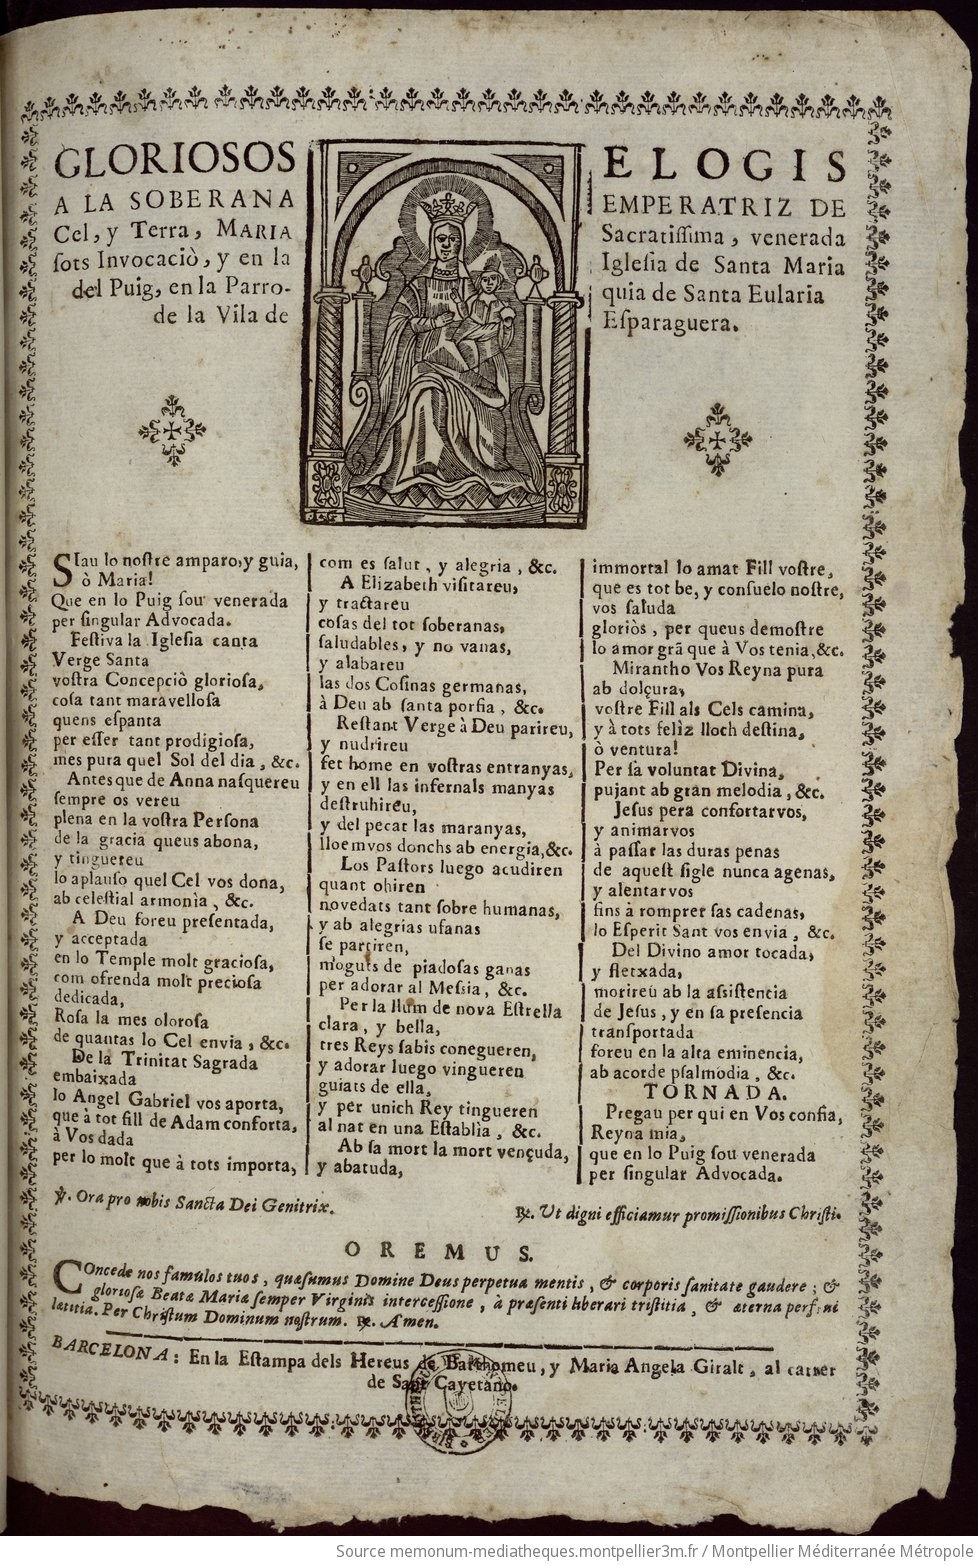 GLORIOSOS ELOGIS
A LA SOBERANA EMPERATRIZ DE
Cel, y Terra, MARIA Sacratiſſima, venerada
ſots Invocaciò, y en la Igleſia de Santa Maria
del Puig, en la Parro- quia de Santa Eularia
de la Vila de Eſparaguera.
SIau lo noſtre amparo, y guia,
ò Maria!
Que en lo Puig ſou venerada
per ſingular Advocada.
Feſtiva la Igleſia canta
Verge Santa
voſtra Concepciò glorioſa,
coſa tant maravelloſa
quens eſpanta
per eſſer tant prodigioſa,
mes pura quel Sol del dia, &c.
Antes que de Anna naſquereu
ſempre os vereu
plena en la voſtra Perſona
de la gracia queus abona,
y tinguereu
lo aplauſo quel Cel vos dona,
ab celeſtial armonìa, &c.
A Deu foreu preſentada,
y acceptada
en lo Temple molt gracioſa,
com ofrenda molt precioſa
dedicada,
Roſa la mes oloroſa
de quantas lo Cel envia, &c.
De la Trinitat Sagrada
embaixada
lo Angel Gabriel vos aporta,
que à tot fill de Adam conforta,
à Vos dada
per lo molt que à tots importa,
com es ſalut, y alegria, &c.
A Elizabeth viſitareu,
y tractareu
coſas del tot ſoberanas,
ſaludables, y no vanas,
y alabareu
las dos Coſinas germanas,
à Deu ab ſanta porfia, &c.
Reſtant Verge à Deu parireu,
y nudrireu
fet home en voſtras entranyas,
y en ell las infernals manyas
deſtruhireu,
y del pecat las maranyas,
lloemvos donchs ab energìa,&c.
Los Paſtors luego acudiren
quant ohiren
novedats tant ſobre humanas,
y ab alegrias ufanas
ſe partiren,
moguts de piadoſas ganas
per adorar al Meſsia, &c.
Per la llum de nova Eſtrella
clara, y bella,
tres Reys ſabis conegueren,
y adorar luego vingueren
guiats de ella,
y per unich Rey tingueren
al nat en una Eſtablìa, &c.
Ab ſa mort la mort vençuda,
y abatuda,
immortal lo amat Fill voſtre,
que es tot be, y conſuelo noſtre,
vos ſaluda
gloriòs, per queus demoſtre
lo amor grã que à Vos tenia,&c.
Mirantho Vos Reyna pura
ab dolçura,
voſtre Fill als Cels camina,
y à tots felìz lloch deſtina,
ò ventura!
Per ſà voluntat Divina,
pujant ab gran melodia, &c.
Jeſus pera confortarvos,
y animarvos
à paſſar las duras penas
de aqueſt ſigle nunca agenas,
y alentarvos
fins à romprer ſas cadenas,
lo Eſperit Sant vos envia, &c.
Del Divino amor tocada,
y fletxada,
morireu ab la aſsiſtencia
de Jeſus, y en ſa preſencia
tranſportada
foreu en la alta eminencia,
ab acorde pſalmodia, &c.
TORNADA.
Pregau per qui en Vos confia,
Reyna mia,
que en lo Puig ſou venerada
per ſingular Advocada.
℣. Ora pro nobis Sancta Dei Genitrix. ℟. Ut digni efficiamur promiſſionibus Chriſti.
OREMUS.
COncede nos famulos tuos, quæſumus Domine Deus perpetua mentis, & corporis ſanitate gaudere; &
glorioſæ Beatæ Mariæ ſemper Virginis interceſſione, à præſenti liberari triſtitia, & æterna perfrui
lætitia. Per Chriſtum Dominum noſtrum. ℟. Amen.
BARCELONA: En la Eſtampa dels Hereus de Barthomeu, y Maria Angela Giralt, al carrer
de Sant Cayetano.
Source memonum-mediatheques.montpellier3m.fr / Montpellier Méditerranée Métropole